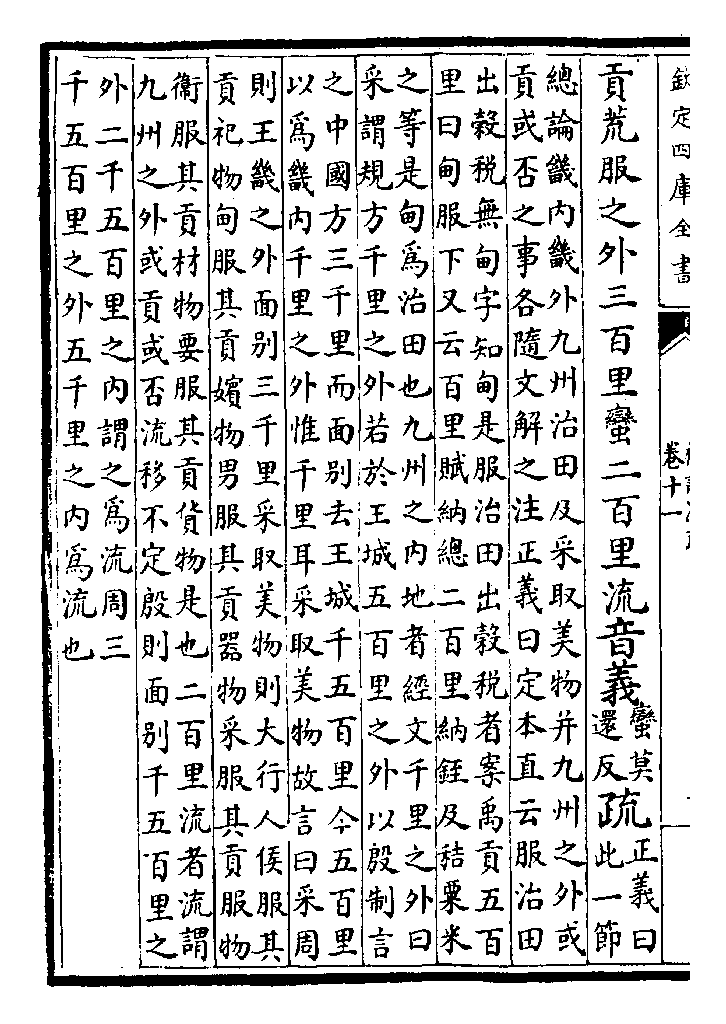 欽定四庫全書
卷十一
貢荒服之外三百里蠻二百里流音義蠻莫還反疏正義曰此一節
總論畿内畿外九州治田及采取美物并九州之外或
貢或否之事各隨文解之注正義曰定本直云服治田
出穀税無甸字知甸是服治田出穀税者案禹貢五百
里曰甸服下又云百里賦納總二百里納銍及秸粟米
之等是甸為治田也九州之内地者經文千里之外曰
采謂規方千里之外若於王城五百里之外以殷制言
之中國方三千里而面别去王城千五百里今五百里
以為畿内千里之外惟千里耳采取美物故言曰采周
則王畿之外面别三千里采取美物則大行人侯服其
貢祀物甸服其貢嬪物男服其貢器物采服其貢服物
衛服其貢材物要服其貢貨物是也二百里流者流謂
九州之外或貢或否流移不定殷則面别千五百里之
外二千五百里之内謂之為流周三
千五百里之外五千里之内為流也